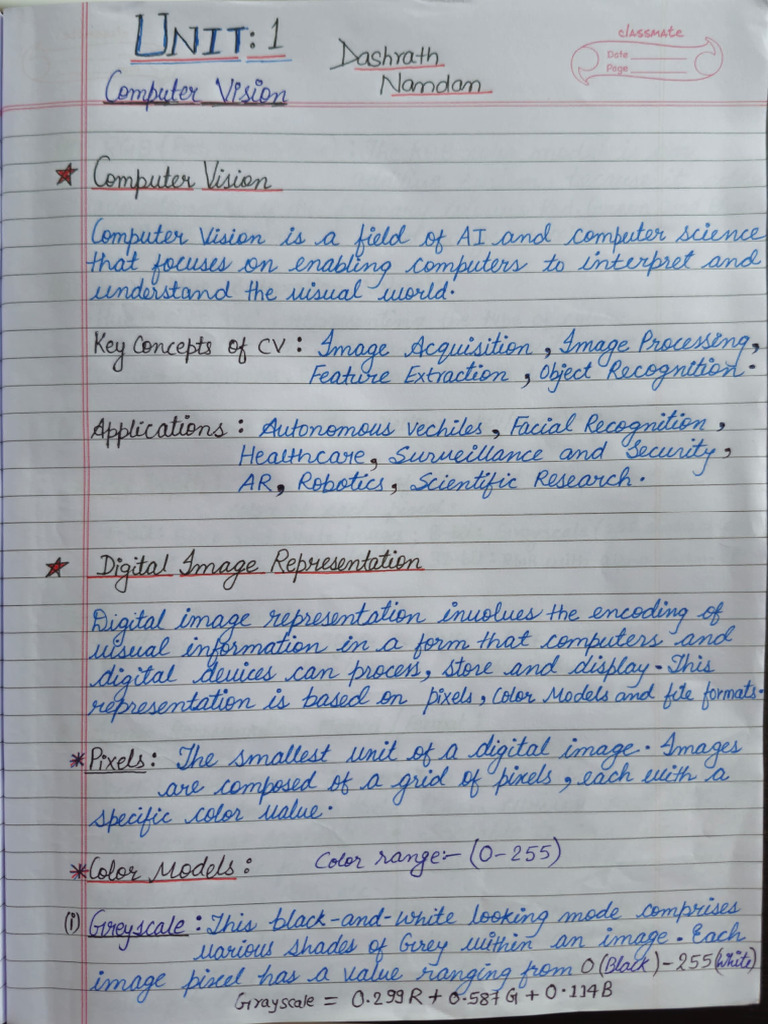 UNIT: 1
Dashrath
Namdan
classmate
Date
Page
Computer Vision
★ Computer Vision
Computer Vision is a field of AI and computer science
that focuses on enabling computers to interpret and
understand the visual world.
Key Concepts of CV : Image Acquisition, Image Processing,
Feature Extraction, Object Recognition.
Applications : Autonomous vechiles, Facial Recognition,
Healthcare, Surveillance and Security,
AR, Robotics, Scientific Research.
★ Digital Image Representation
Digital image representation involves the encoding of
visual information in a form that computers and
digital devices can process, store and display. This
representation is based on pixels, Color Models and file formats.
*Pixels: The smallest unit of a digital image. Images
are composed of a grid of pixels, each with a
specific color value.
*Color Models: Color range:- (0-255)
(i) Greyscale: This black-and-white looking mode comprises
various shades of Grey within an image. Each
image pixel has a value ranging from 0 (Black) - 255 (White)
Grayscale = 0.299R + 0.587G + 0.114B